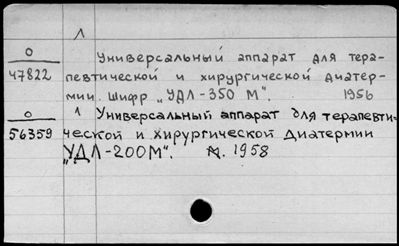 Λ
О
47822
Универсальный аппарат для тера-
певтической и хирургической диатер-
мии. Шифр „УДЛ-350 М". 1956
О
56359
1 Универсальный аппарат для терапевти-
ческой и хирургической диатермии
„УДЛ-200М". М. 1958